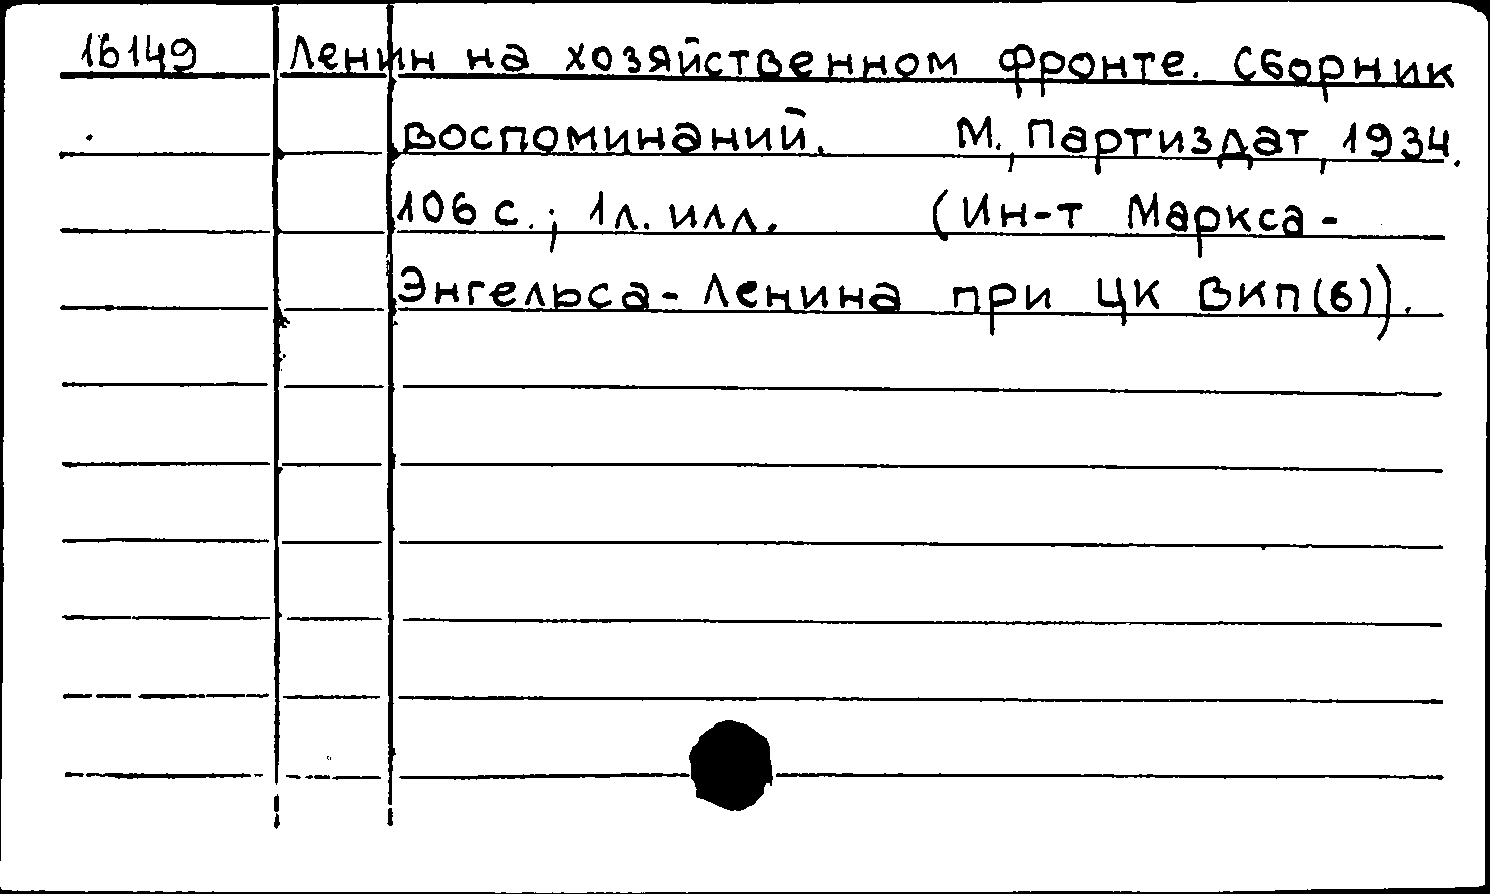 16149 Ленин на хозяйственном фронте. Сборник
воспоминаний. М., Партиздат, 1934.
106 с.; 1 л. илл. (Ин-т Маркса-
Энгельса-Ленина при ЦК ВКП(б)).